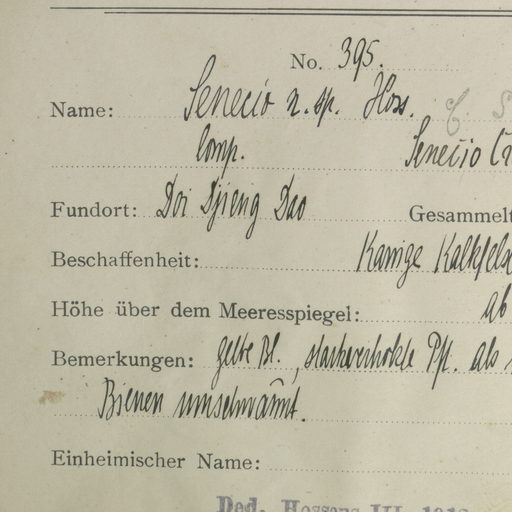 No. 395.
Name: Senecio n. sp. Hoss.
Comp. Senecio Cr
Fundort: Doi Djieng Dao Gesammelt
Beschaffenheit: Kalkfels
Höhe über dem Meeresspiegel: ab
Bemerkungen: gelbe Bl., starkverholzte Pfl. als
Bienen umschwärmt.
Einheimischer Name:
Ded. Hosseus III.